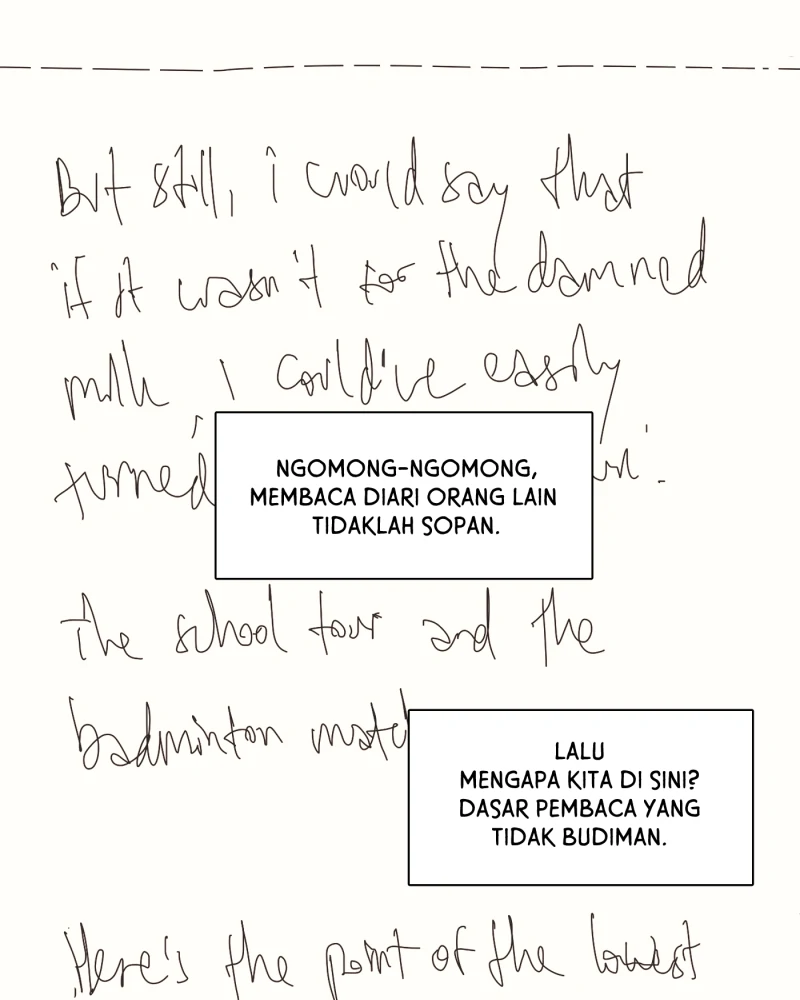 But still, i would say that
if it wasn't for the damned
milk I could've easily
turned
NGOMONG-NGOMONG,
MEMBACA DIARI ORANG LAIN
TIDAKLAH SOPAN.
the school tour and the
badminton match
LALU
MENGAPA KITA DI SINI?
DASAR PEMBACA YANG
TIDAK BUDIMAN.
Here's the point of the lowest